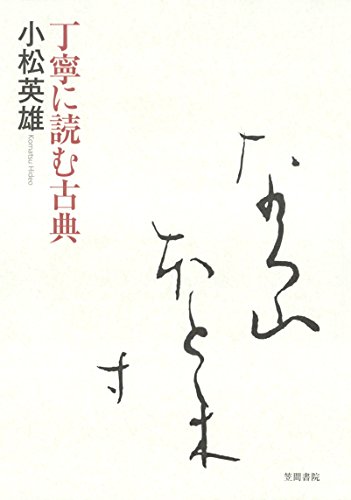 丁寧に読む古典
小松英雄
Komatsu Hideo
笠間書院